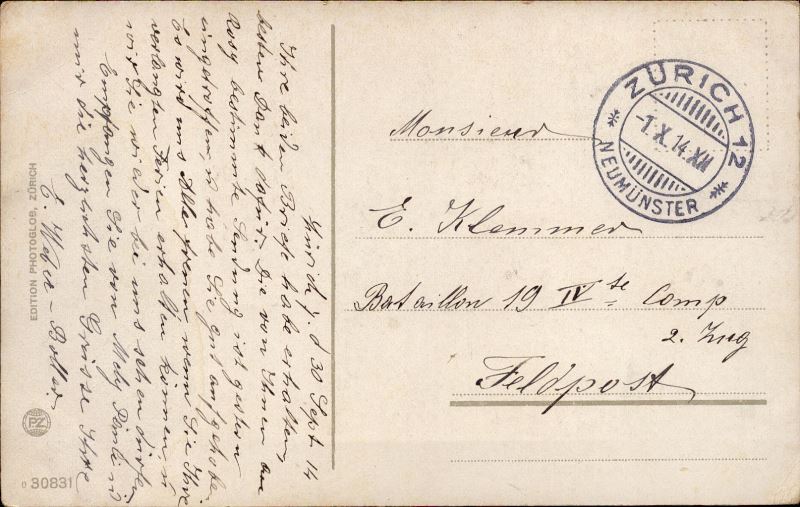 Zürich 7. d 30 Sept 14
Ihre beiden Briefe habe erhalten,
besten Dank dafür. Die von Ihnen an
Rosy bestimmte Sendung ist gestern
eingetroffen, u habe Sie gut aufgehoben
Es wird uns Alle freuen wenn Sie Ihre
verlangten Ferien erhalten können u
wir Sie wieder bei uns sehen dürfen
Empfangen Sie von u
mir die herzlichsten Grüsse Ihre
E. Weber-Boller.
EDITION PHOTOGLOB, ZÜRICH
PZ
30831
ZÜRICH 12
-1.X.14.XII
NEUMÜNSTER
Monsieur
E. Klemmer
Bataillon 19 IV te Comp
2. Zug
Feldpost